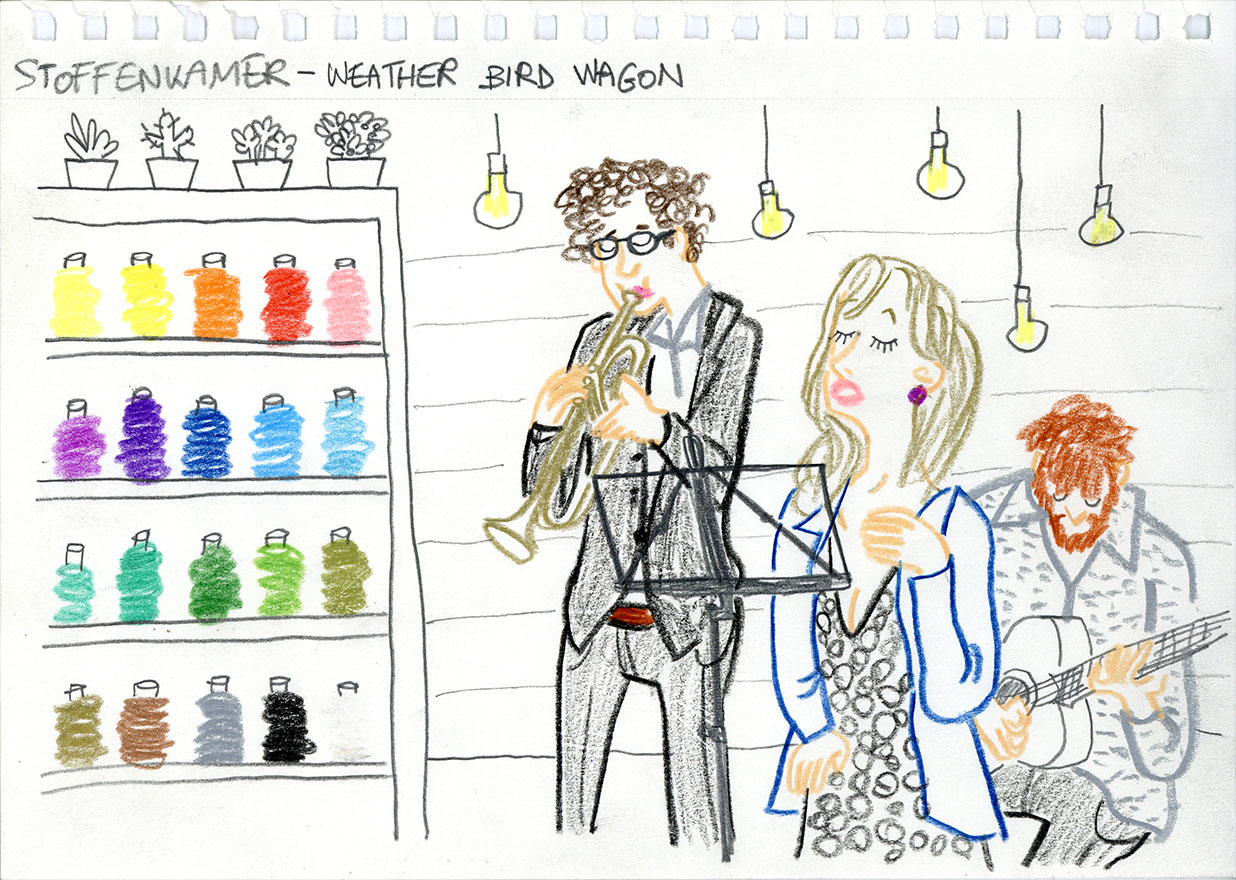 STOFFENKAMER - WEATHER BIRD WAGON